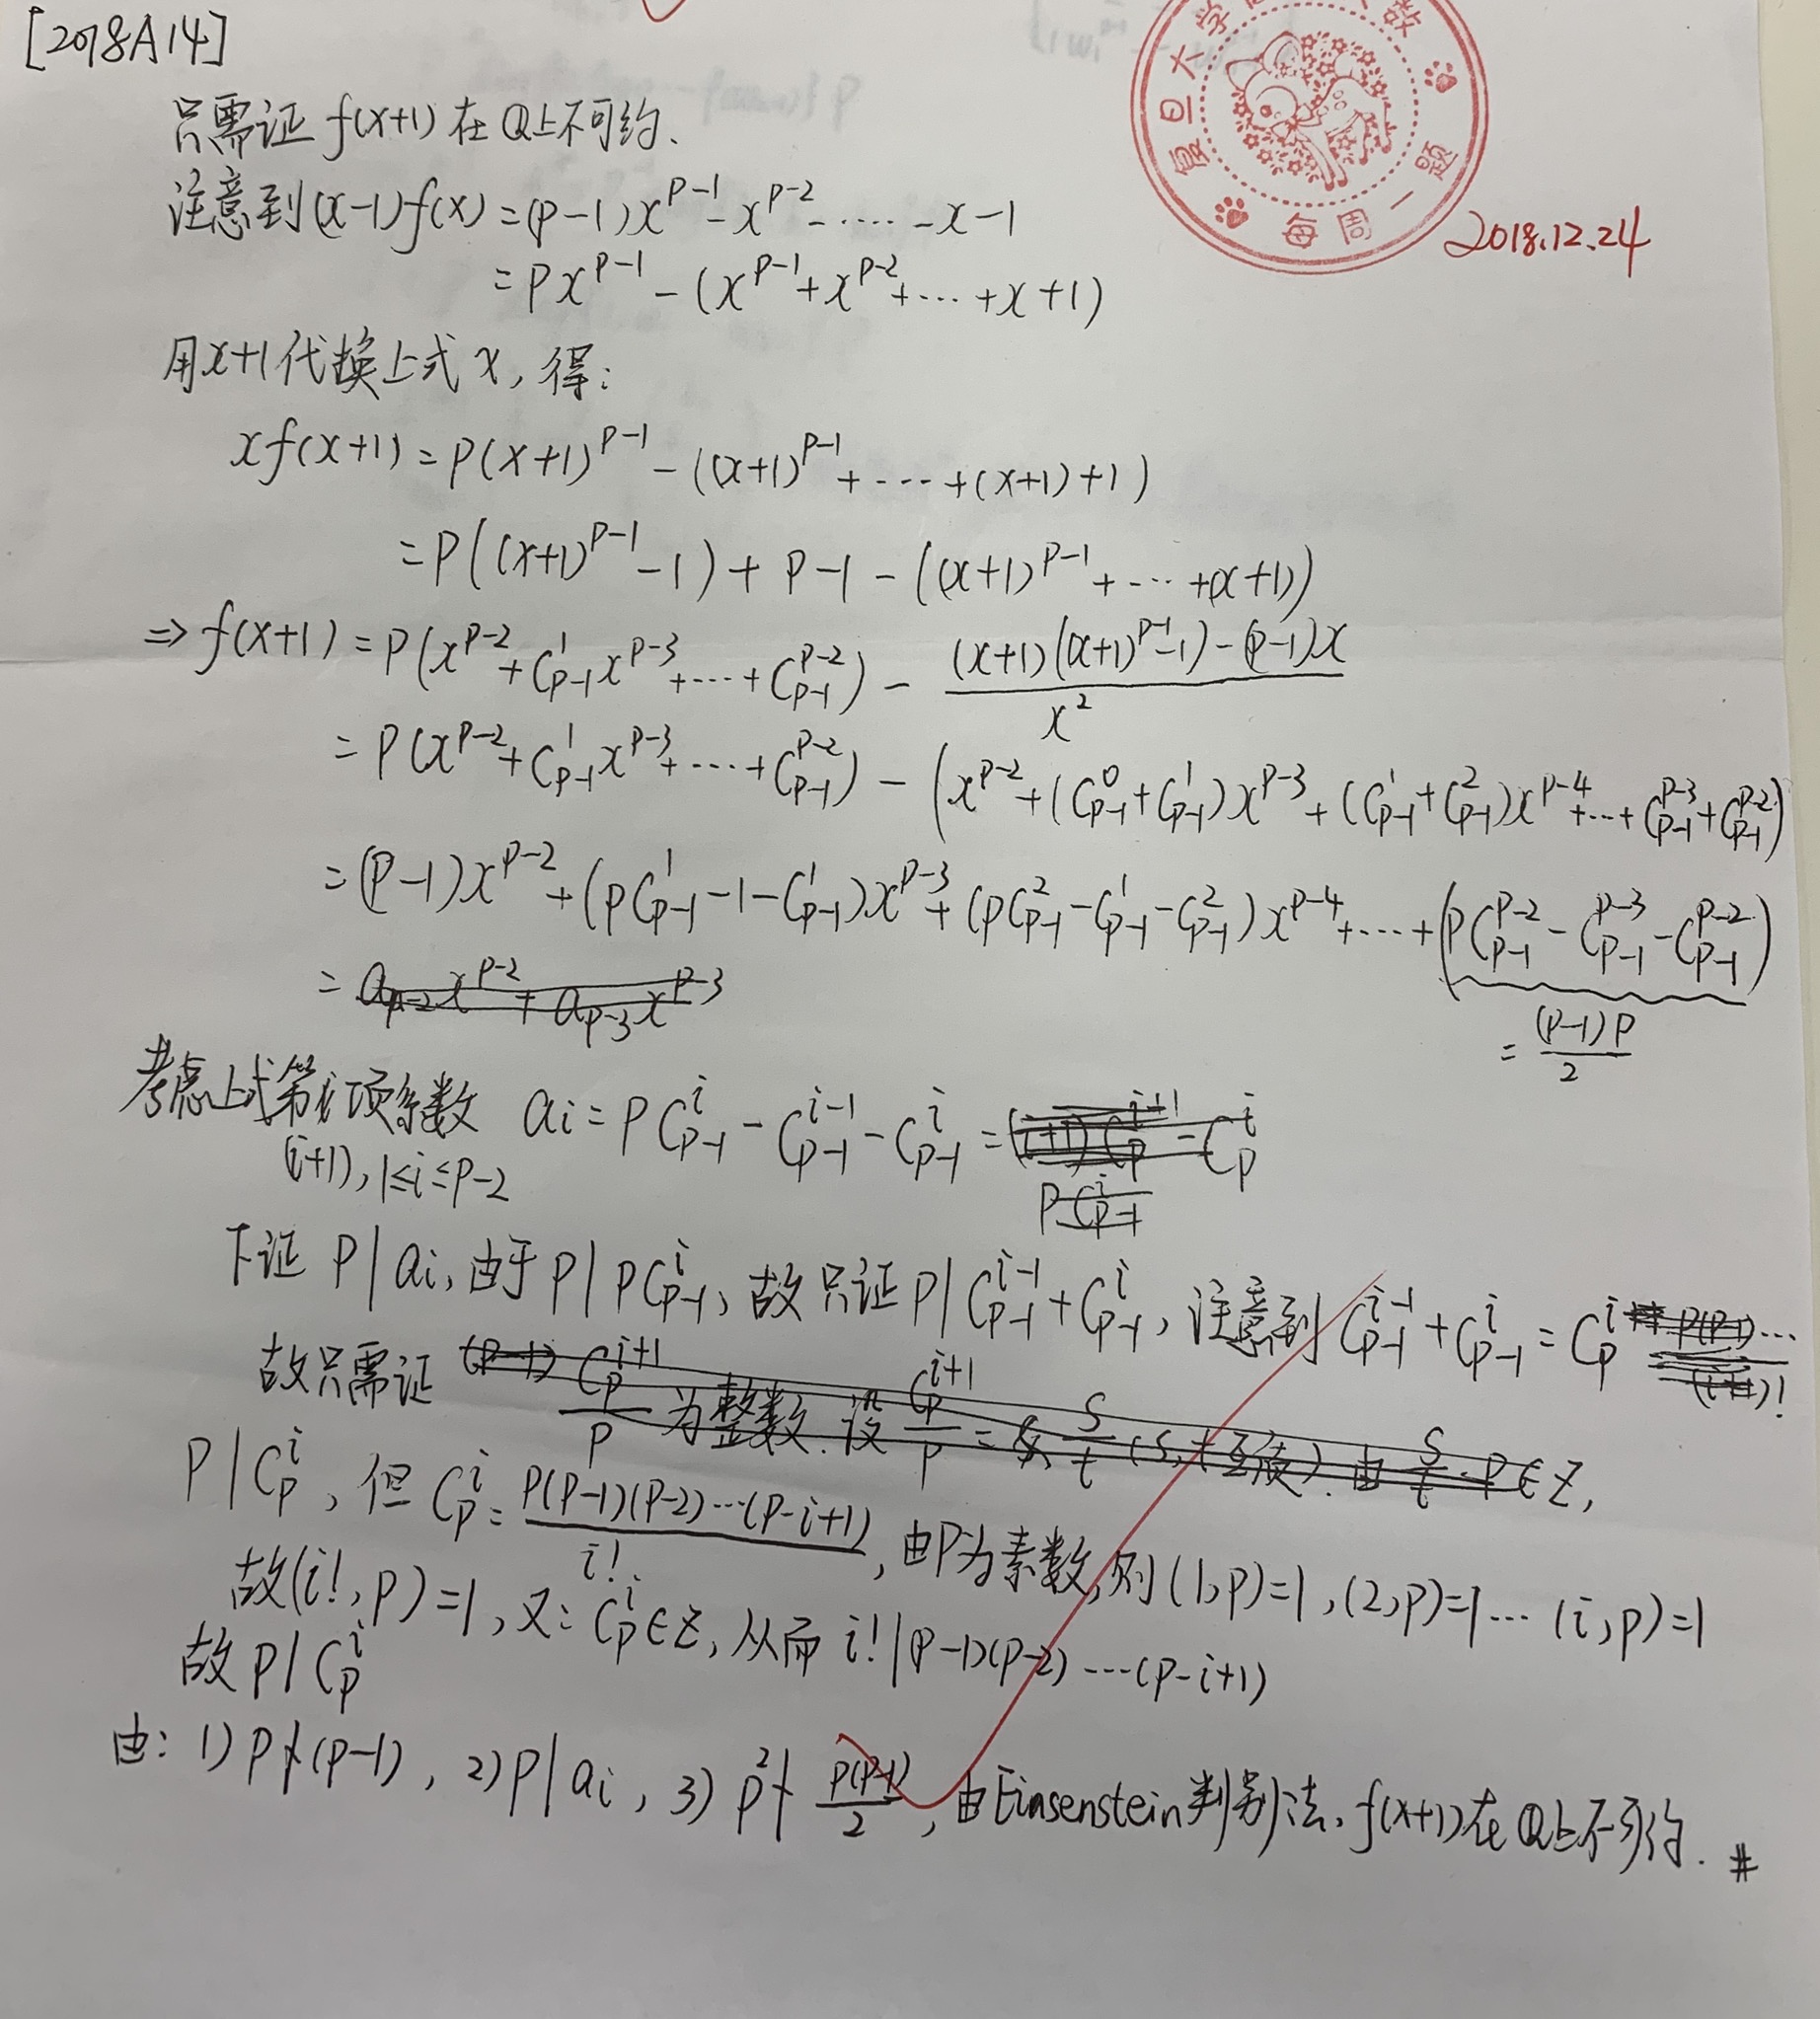 [2018A14]
复旦大学 高 数 每周一题
2018.12.24
只需证 f(x+1) 在 Q上不可约.
注意到 (x-1)f(x) = (p-1)x^{p-1} - x^{p-2} - ····· - x - 1
= px^{p-1} - (x^{p-1} + x^{p-2} + ··· + x + 1)
用x+1代换上式 x, 得:
xf(x+1) = p(x+1)^{p-1} - ((x+1)^{p-1} + ···· + (x+1) + 1)
= p((x+1)^{p-1} - 1) + p-1 - ((x+1)^{p-1} + ···· + (x+1))
⇒ f(x+1) = p(x^{p-2} + C_{p-1}^1 x^{p-3} + ···· + C_{p-1}^{p-2}) - \frac{(x+1)((x+1)^{p-1}-1) - (p-1)x}{x^2}
= p(x^{p-2} + C_{p-1}^1 x^{p-3} + ···· + C_{p-1}^{p-2}) - (x^{p-2} + (C_{p-1}^0 + C_{p-1}^1)x^{p-3} + (C_{p-1}^1 + C_{p-1}^2)x^{p-4} + ··· + C_{p-1}^{p-3} + C_{p-1}^{p-2})
= (p-1)x^{p-2} + (pC_{p-1}^1 - 1 - C_{p-1}^1)x^{p-3} + (pC_{p-1}^2 - C_{p-1}^1 - C_{p-1}^2)x^{p-4} + ···· + (pC_{p-1}^{p-2} - C_{p-1}^{p-3} - C_{p-1}^{p-2})
= \frac{(p-1)p}{2}
= a_{p-2}x^{p-2} + a_{p-3}x^{p-3}
考虑上式第 项系数 a_i = pC_{p-1}^i - C_{p-1}^{i-1} - C_{p-1}^i = C_p^i
(i+1), 1≤i≤p-2
pC_{p-1}^i
下证 p|a_i, 由于 p|pC_{p-1}^i, 故只证 p|C_{p-1}^{i-1} + C_{p-1}^i, 注意到 C_{p-1}^{i-1} + C_{p-1}^i = C_p^i
故只需证 (p-1) \frac{C_p^{i+1}}{p} 为整数. 设 \frac{C_p^{i+1}}{p} = \frac{s}{t} (s,t互质). 由 \frac{s}{t}·p ∈ Z,
p|C_p^i, 但 C_p^i = \frac{p(p-1)(p-2)···(p-i+1)}{i!}, 由p为素数, 则 (1,p)=1, (2,p)=1 ··· (i,p)=1
故(i!,p)=1, 又∵ C_p^i∈Z, 从而 i!|(p-1)(p-2)····(p-i+1)
故 p|C_p^i
由: 1) p∤(p-1), 2) p|a_i, 3) p^2∤\frac{p(p-1)}{2}, 由Einsenstein判别法, f(x+1)在 Q上不可约. #